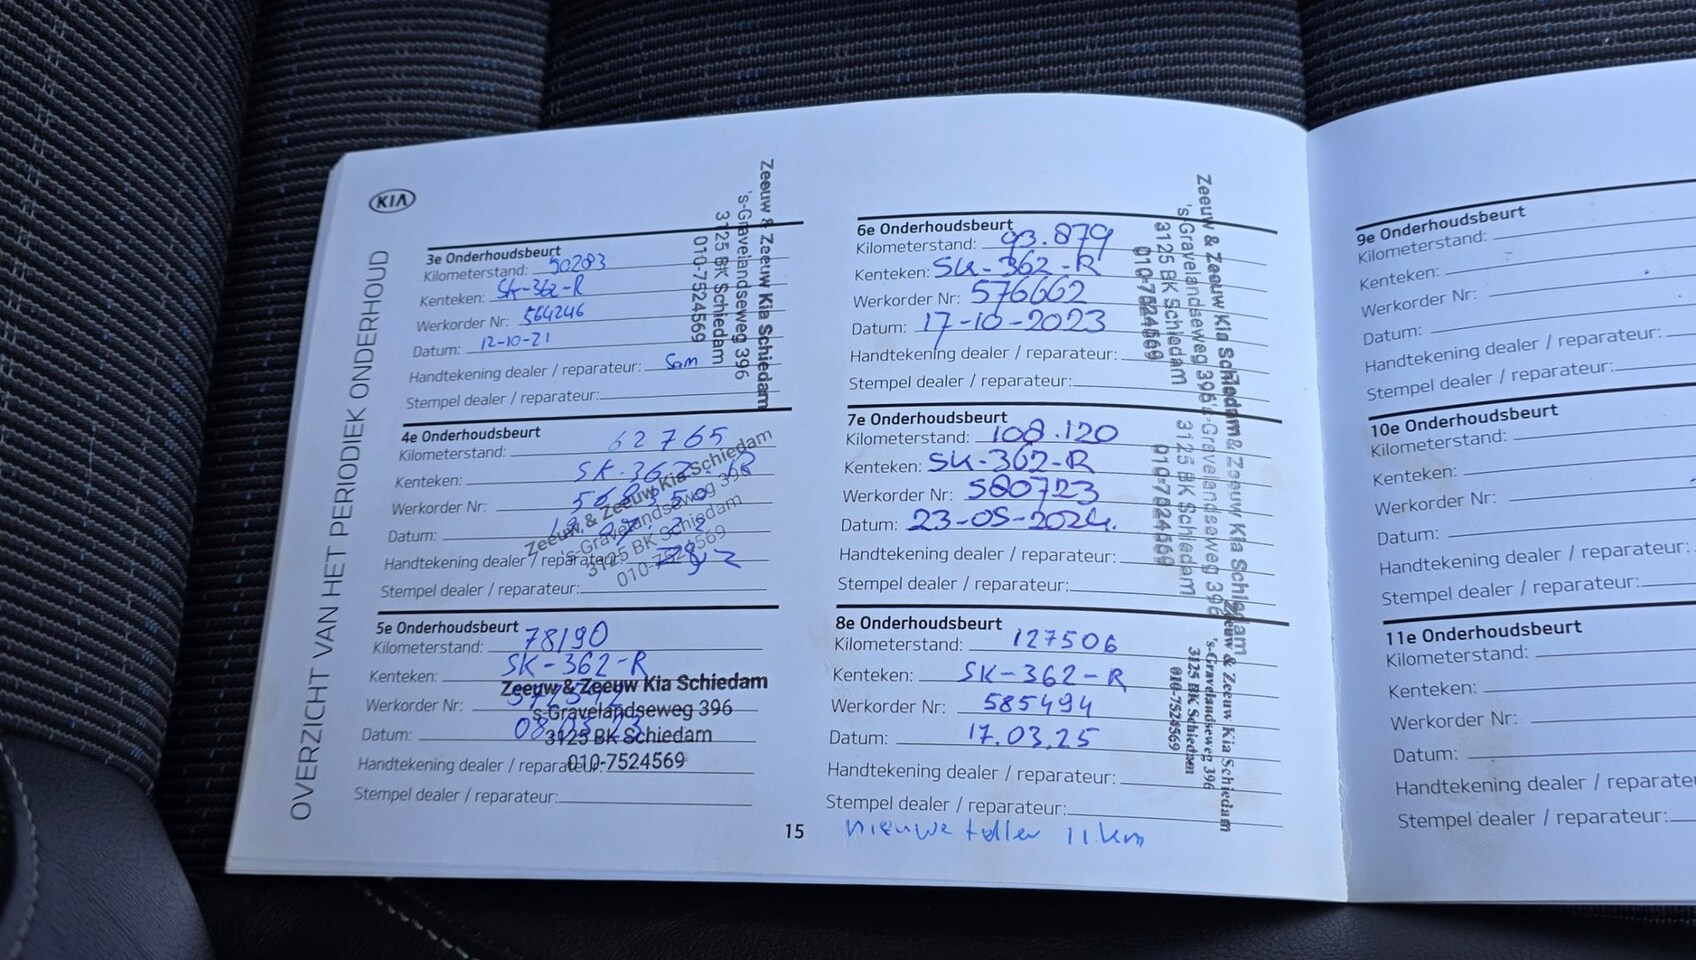 KIA
OVERZICHT VAN HET PERIODIEK ONDERHOUD
3e Onderhoudsbeurt
Kilometerstand: 50283
Kenteken: SK-362-R
Werkorder Nr: 564246
Datum: 12-10-21
Handtekening dealer / reparateur: Sam
Stempel dealer / reparateur:
Zeeuw & Zeeuw Kia Schiedam
's-Gravelandseweg 396
3125 BK Schiedam
010-7524569
4e Onderhoudsbeurt
Kilometerstand: 62765
Kenteken: SK-362-R
Werkorder Nr:
Datum:
Handtekening dealer / reparateur:
Stempel dealer / reparateur:
Zeeuw & Zeeuw Kia Schiedam
's-Gravelandseweg 396
3125 BK Schiedam
010-7524569
5e Onderhoudsbeurt
Kilometerstand: 78190
Kenteken: SK-362-R
Werkorder Nr:
Datum:
Handtekening dealer / reparateur:
Stempel dealer / reparateur:
Zeeuw & Zeeuw Kia Schiedam
's-Gravelandseweg 396
3125 BK Schiedam
010-7524569
15
6e Onderhoudsbeurt
Kilometerstand: 93.879
Kenteken: SK-362-R
Werkorder Nr: 576662
Datum: 17-10-2023
Handtekening dealer / reparateur:
Stempel dealer / reparateur:
Zeeuw & Zeeuw Kia Schiedam
's-Gravelandseweg 396
3125 BK Schiedam
010-7524569
7e Onderhoudsbeurt
Kilometerstand: 108.120
Kenteken: SK-362-R
Werkorder Nr: 580723
Datum: 23-05-2024.
Handtekening dealer / reparateur:
Stempel dealer / reparateur:
Zeeuw & Zeeuw Kia Schiedam
's-Gravelandseweg 396
3125 BK Schiedam
010-7524569
8e Onderhoudsbeurt
Kilometerstand: 127506
Kenteken: SK-362-R
Werkorder Nr: 585494
Datum: 17.03.25
Handtekening dealer / reparateur:
Stempel dealer / reparateur:
Zeeuw & Zeeuw Kia Schiedam
's-Gravelandseweg 396
3125 BK Schiedam
010-7524569
nieuwe teller 11 km
9e Onderhoudsbeurt
Kilometerstand:
Kenteken:
Werkorder Nr:
Datum:
Handtekening dealer / reparateur:
Stempel dealer / reparateur:
10e Onderhoudsbeurt
Kilometerstand:
Kenteken:
Werkorder Nr:
Datum:
Handtekening dealer / reparateur:
Stempel dealer / reparateur:
11e Onderhoudsbeurt
Kilometerstand:
Kenteken:
Werkorder Nr:
Datum:
Handtekening dealer / reparateur
Stempel dealer / reparateur: